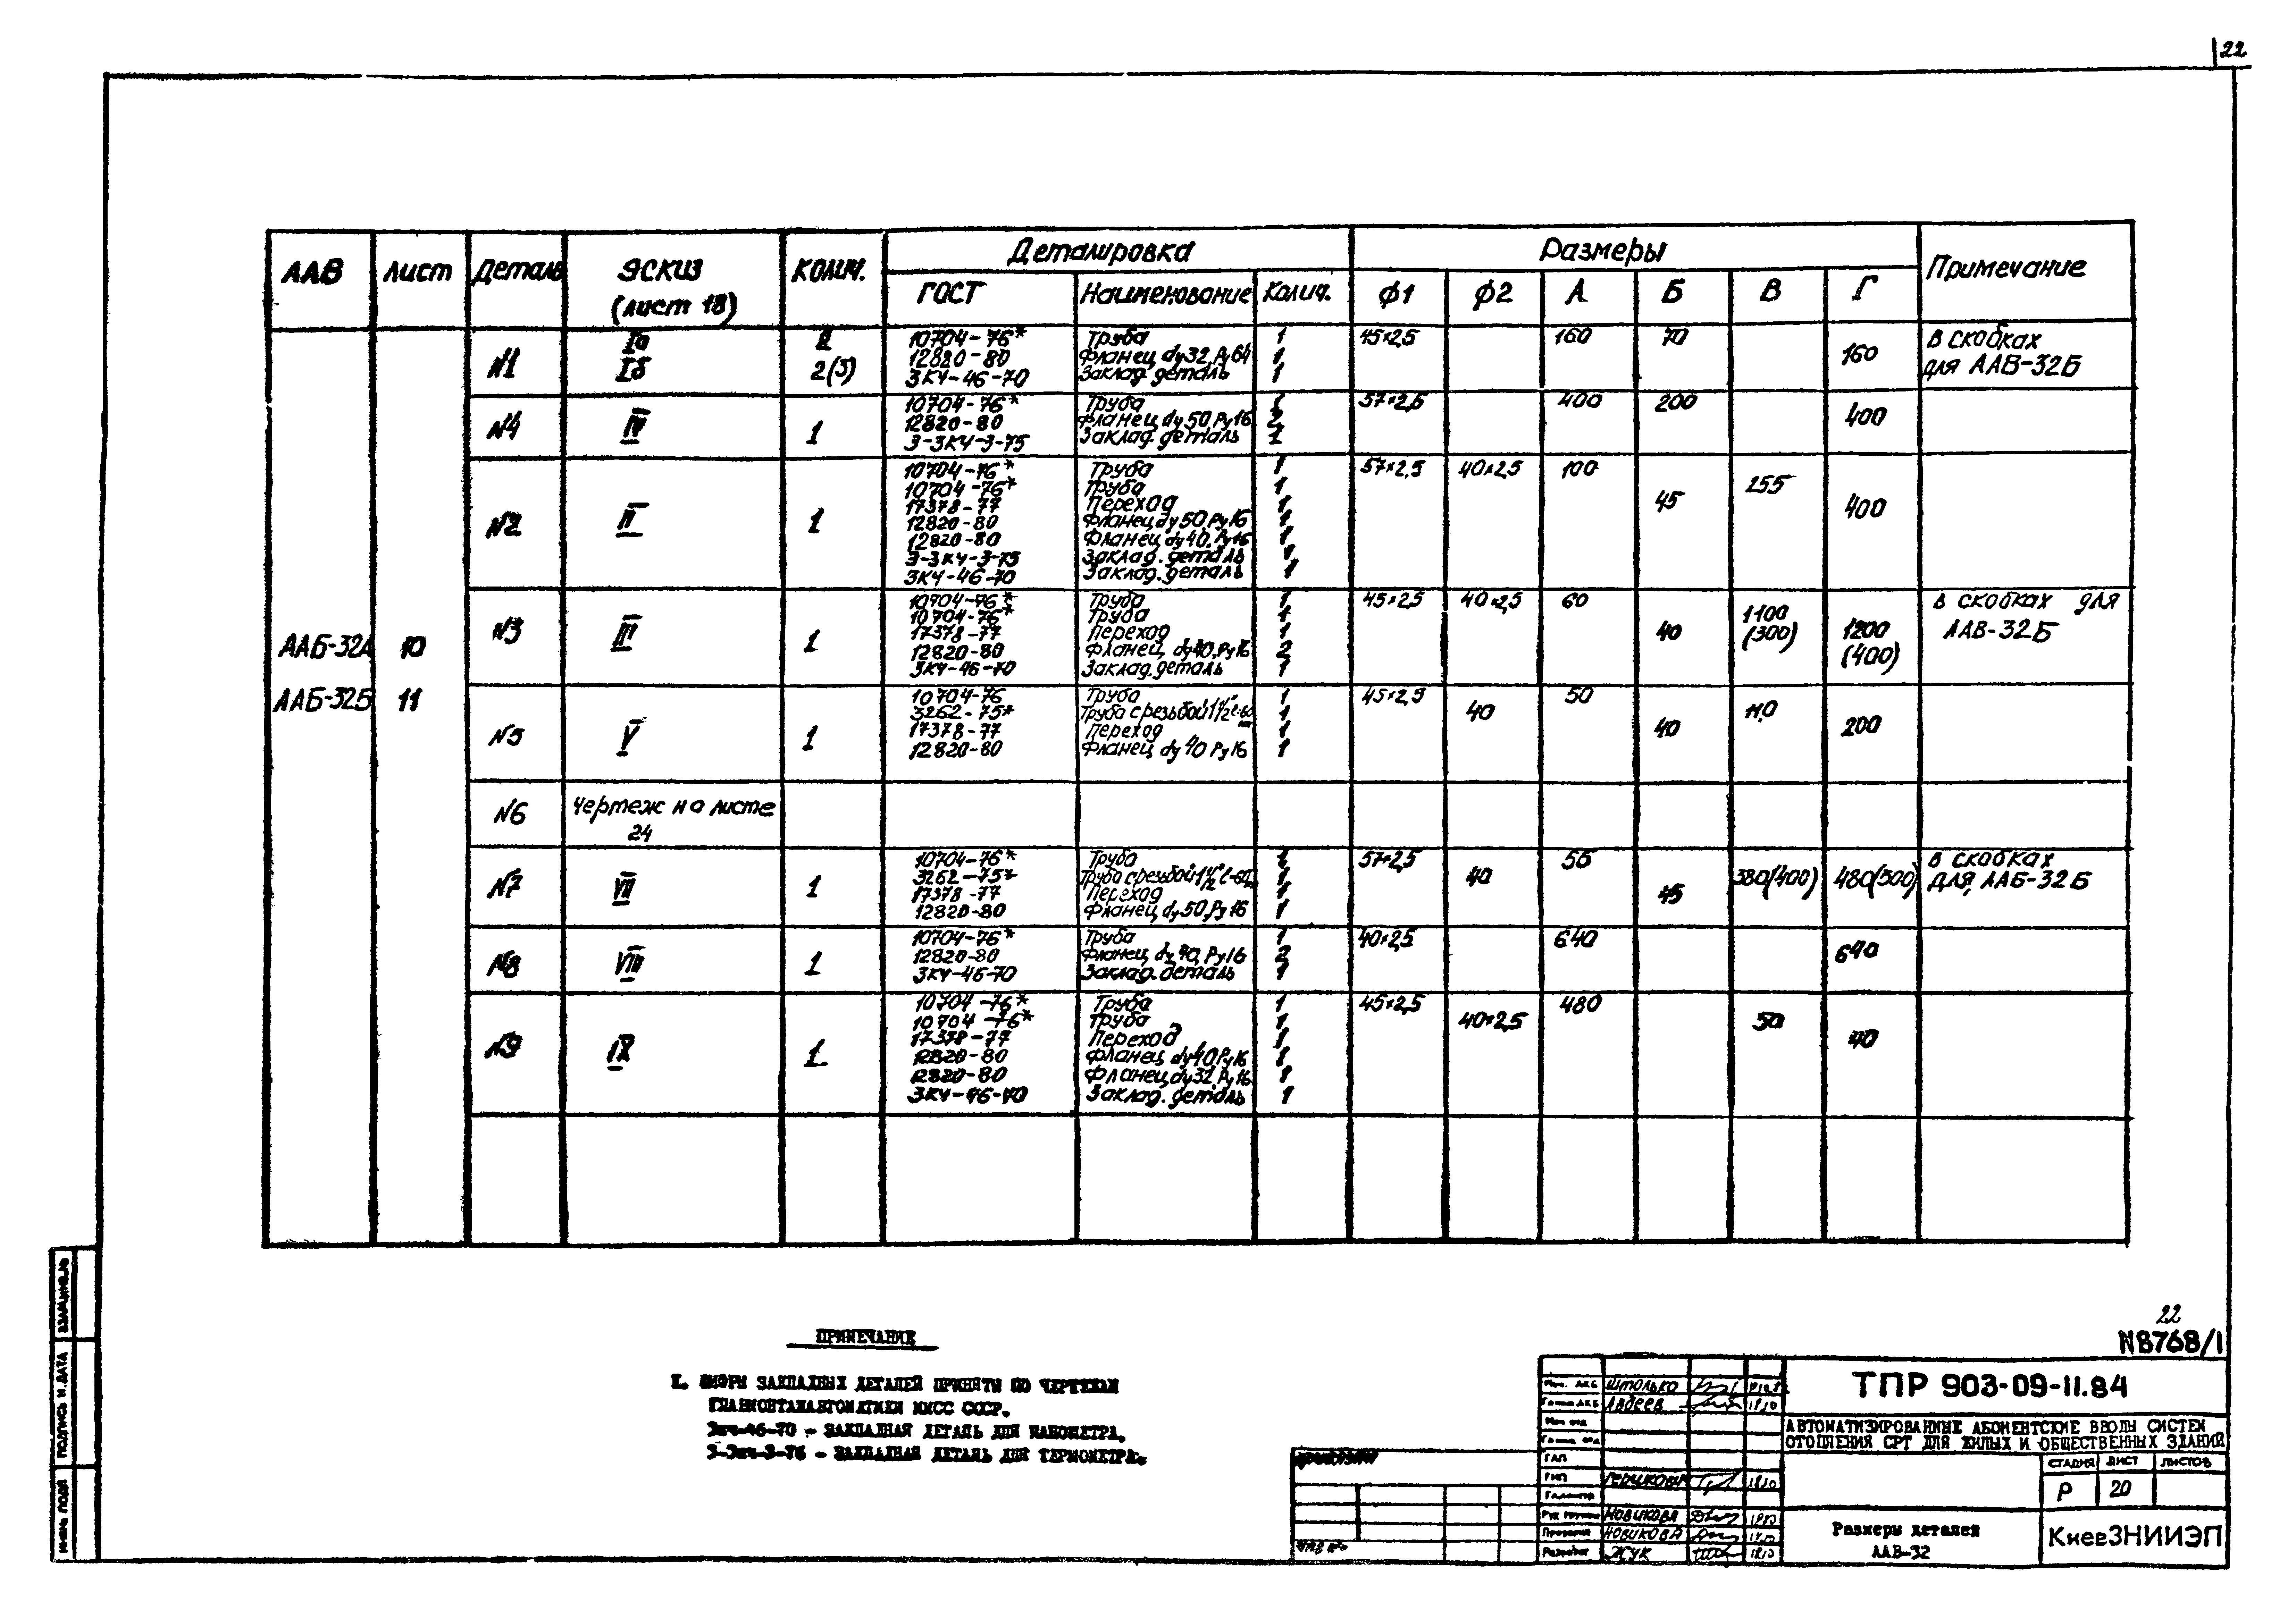 22
ААВ Лист Деталь Эскиз (лист 18) Колич. Деталировка Размеры Примечание
ГОСТ Наименование Колич. ф1 ф2 А Б В Г
ААБ-32А 10
ААБ-32Б 11
N1 Iа 2
Iб 2(3)
10704-76* Труба 1 45×2,5 160 70 160 в скобках
12820-80 Фланец dу32, Ру64 1 для ААВ-32Б
ЗКЧ-46-70 Заклад. деталь 1
N4 IV 1
10704-76* Труба 1 57×2,5 400 200 400
12820-80 Фланец dу50, Ру16 2
3-ЗКЧ-3-75 Заклад. деталь 1
N2 II 1
10704-76* Труба 1 57×2,5 40×2,5 100 45 255 400
10704-76* Труба 1
17378-77 Переход 1
12820-80 Фланец dу50, Ру16 1
12820-80 Фланец dу40, Ру16 1
3-ЗКЧ-3-75 Заклад. деталь 1
ЗКЧ-46-70 Заклад. деталь 1
N3 III 1
10704-76* Труба 1 45×2,5 40×2,5 60 40 1100 (300) 1200 (400) в скобках для
10704-76* Труба 1 ААВ-32Б
17378-77 Переход 1
12820-80 Фланец dу40, Ру16 2
ЗКЧ-46-70 Заклад. деталь 1
N5 V 1
10704-76 Труба 1 45×2,5 40 50 40 110 200
3262-75* Труба с резьбой 1 1/2" ℓ-60 1
17378-77 Переход 1
12820-80 Фланец dу 40 Ру16 1
N6 Чертеж на листе
24
N7 VII 1
10704-76* Труба 1 57×2,5 40 55 45 380(400) 480(500) в скобках
3262-75* Труба с резьбой 1 1/2" 1 для ААБ-32Б
17378-77 Переход 1
12820-80 Фланец dу50, Ру16 1
N8 VIII 1
10704-76* Труба 1 40×2,5 640 640
12820-80 Фланец dу40, Ру16 2
ЗКЧ-46-70 Заклад. деталь 1
N9 IX 1
10704-76* Труба 1 45×2,5 40×2,5 480 50 40
10704-76* Труба 1
17378-77 Переход 1
12820-80 Фланец dу40 Ру16 1
12820-80 Фланец dу32, Ру16 1
ЗКЧ-46-70 Заклад. деталь 1
ПРИМЕЧАНИЕ
I. ШИФРЫ ЗАКЛАДНЫХ ДЕТАЛЕЙ ПРИНЯТЫ ПО ЧЕРТЕЖАМ
ГЛАВМОНТАЖАВТОМАТИКИ ММСС СССР.
Зкч-46-70 - ЗАКЛАДНАЯ ДЕТАЛЬ ДЛЯ МАНОМЕТРА.
3-Зкч-3-75 - ЗАКЛАДНАЯ ДЕТАЛЬ ДЛЯ ТЕРМОМЕТРА.
22
N8768/1
ТПР 903-09-11.84
АВТОМАТИЗИРОВАННЫЕ АБОНЕНТСКИЕ ВВОДЫ СИСТЕМ
ОТОПЛЕНИЯ СРТ ДЛЯ ЖИЛЫХ И ОБЩЕСТВЕННЫХ ЗДАНИЙ
СТАДИЯ ЛИСТ ЛИСТОВ
Р 20
Размеры деталей
ААВ-32
КиевЗНИИЭП
Нач. АКБ Штолько
Авдеев
ГАП
ГИП
Рук. группы Новикова
Проверил Новикова
Разработ. Жук
ИНВ.№ ПОДЛ ПОДПИСЬ И ДАТА ВЗАМ.ИНВ.№